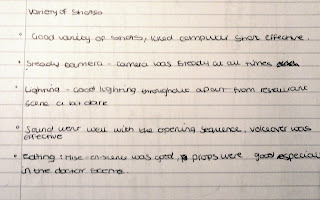 Variety of shots
• Good variety of shots, liked computer shot effective.
• Steady camera - camera was steady at all times
• Lighting - Good lighting throughout apart from restaurant
scene a bit dark
• Sound went well with the opening sequence, voiceover was
effective
• Editing : Mise-en-scene was good, props were good especial
in the doctor scene.